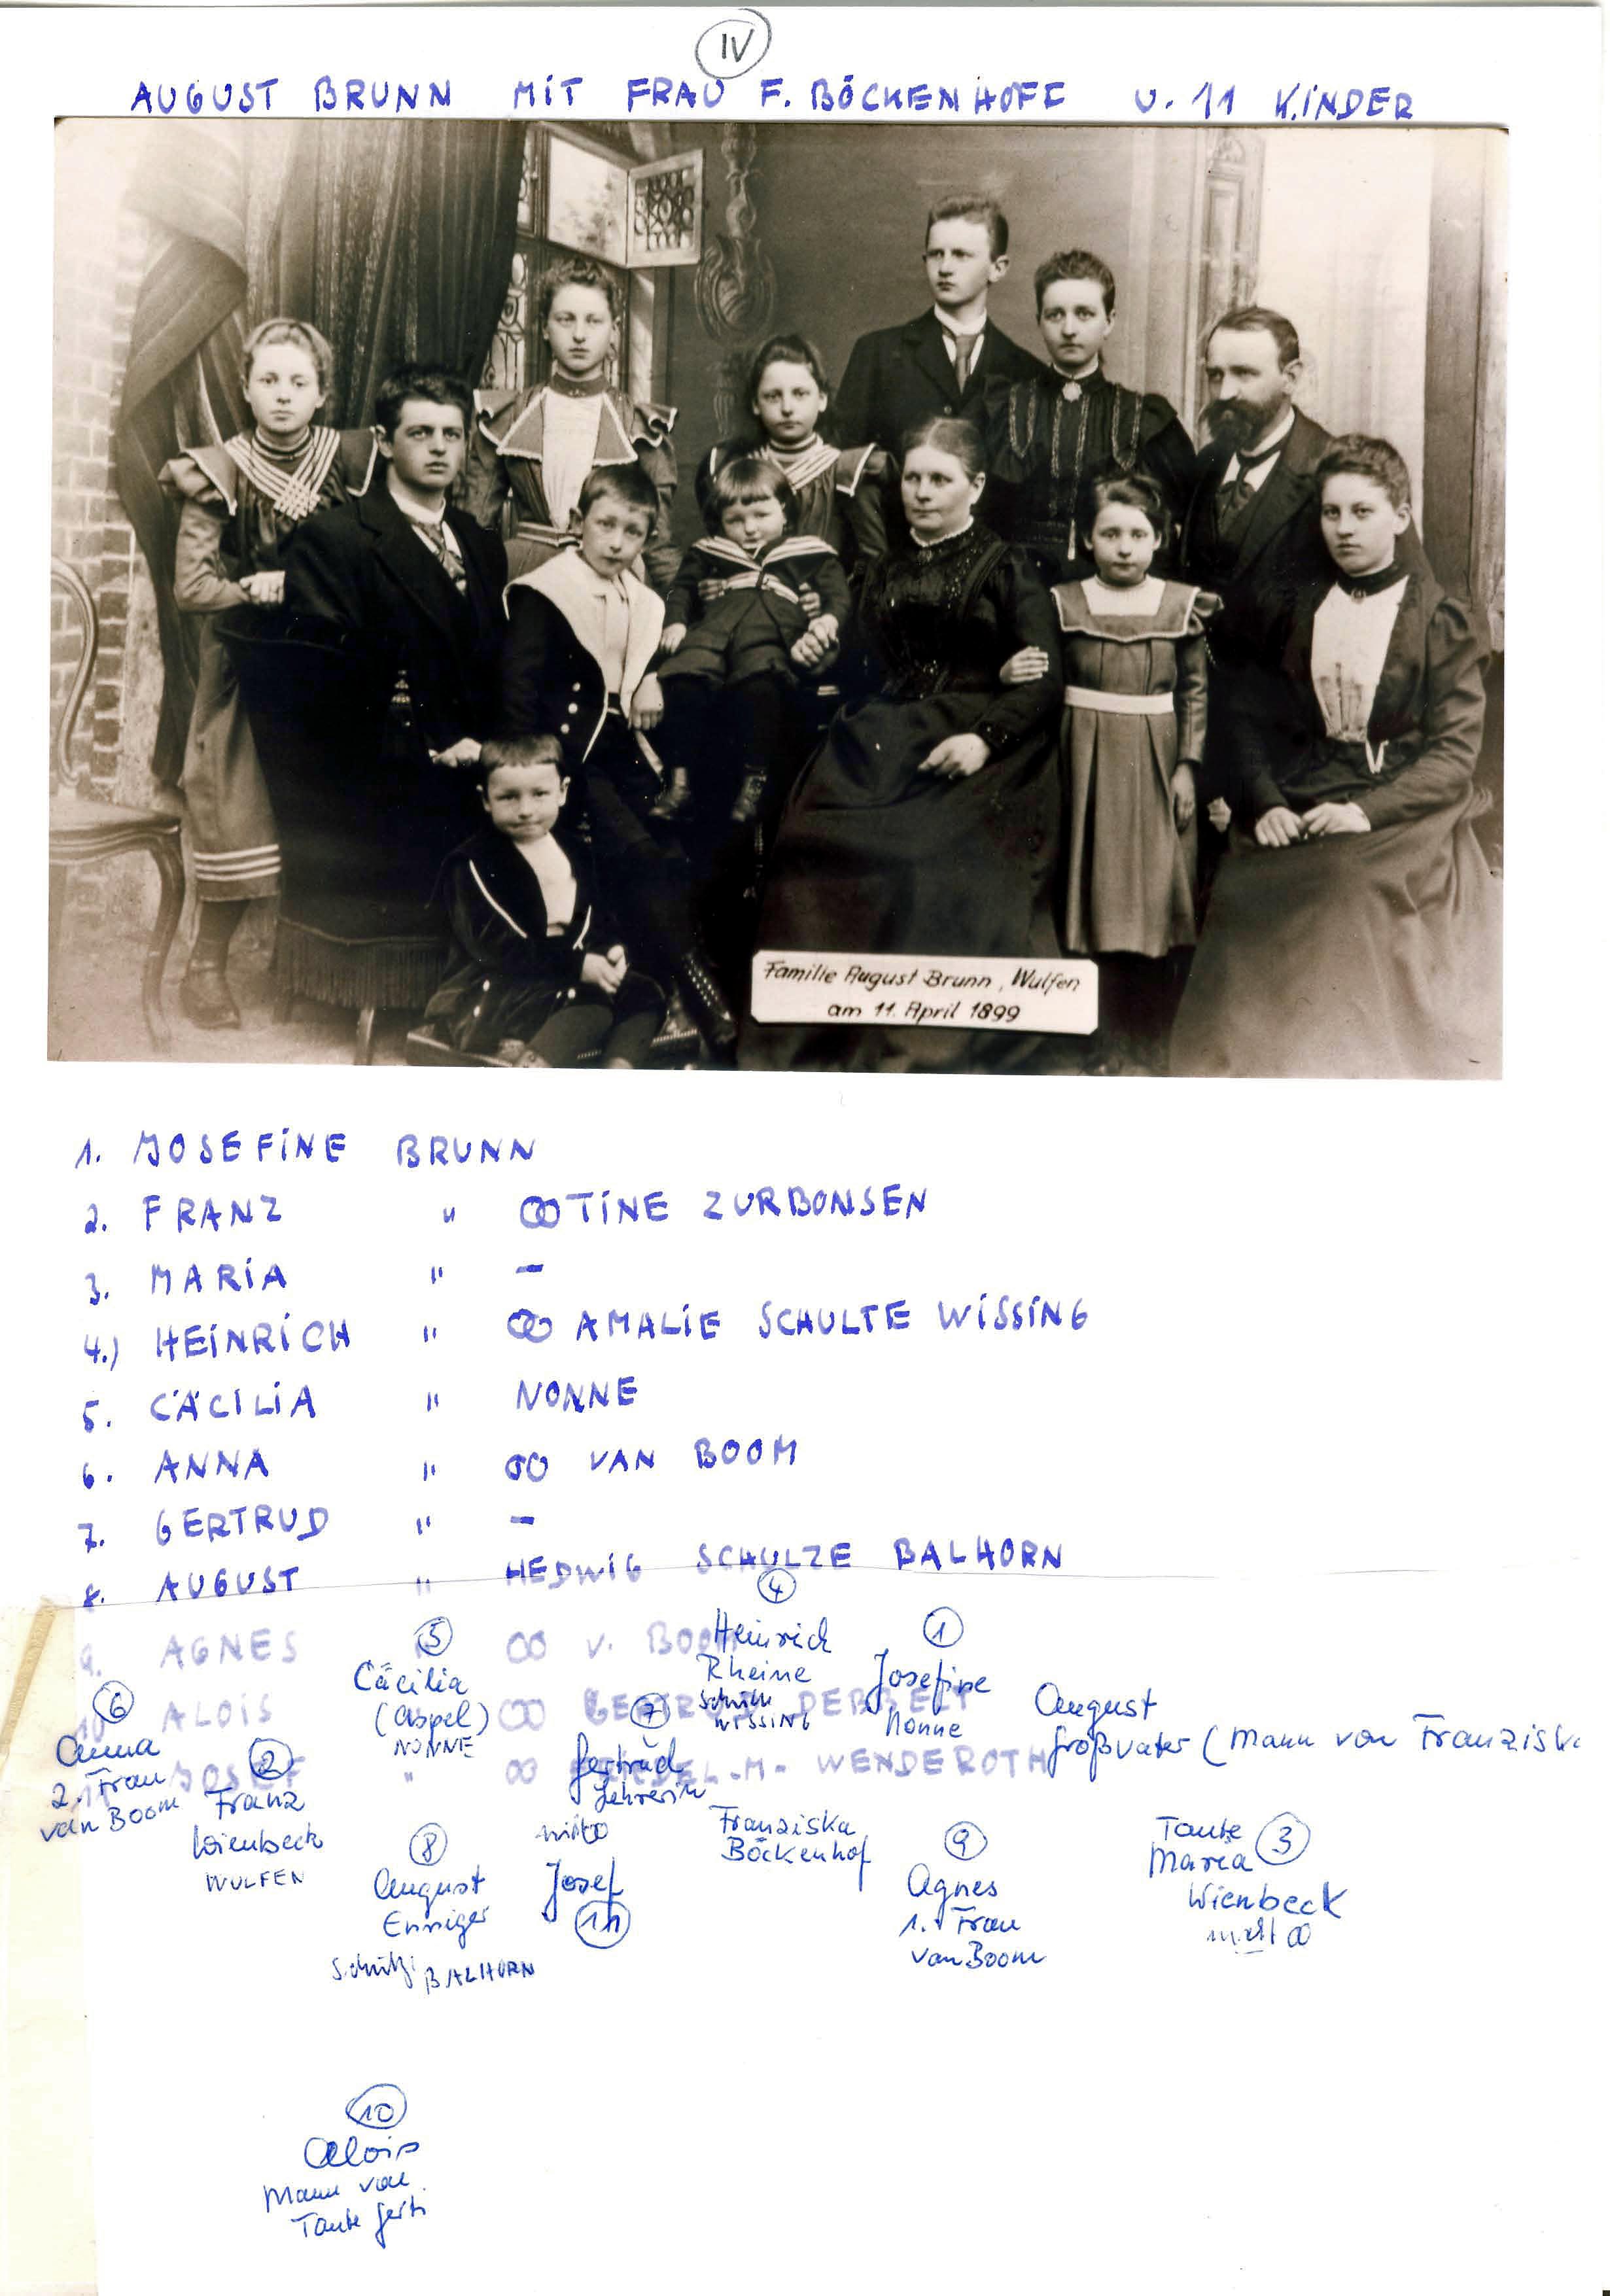 IV
AUGUST BRUNN MIT FRAU F. BÖCKENHOFF U. 11 KINDER
Familie August Brunn, Wulfen
am 11. April 1899
1. JOSEFINE BRUNN
2. FRANZ " ∞ TINE ZURBONSEN
3. MARIA " -
4.) HEINRICH " ∞ AMALIE SCHULTE WISSING
5. CÄCILIA " NONNE
6. ANNA " ∞ VAN BOOM
7. GERTRUD " -
8. AUGUST " HEDWIG SCHULZE BALHORN
9. AGNES " ∞ V. BOOM
10 ALOIS ∞ DEBBELT
JOSEF " ∞ M. WENDEROTH
4
Heinrich
Rheine
WISSING
1
Josefine
Nonne
5
Cäcilia
(Aspel)
NONNE
August
Großvater (Mann von Franziska
6
Anna
2. Frau
van Boom
2
Franz
Wienbeck
WULFEN
7
Gertrud
Lehrerin
nicht ∞
Franziska
Böckenhof
8
August
Enniger
BALHORN
Josef
11
9
Agnes
1. Frau
van Boom
Tante 3
Maria
Wienbeck
nicht ∞
10
Alois
Mann von
Tante Gerti